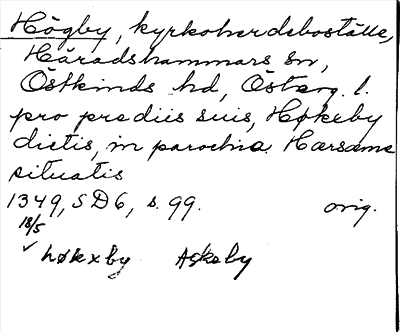 Högby, kyrkoherdeboställe,
Häradshammars sn,
Östkinds hd, Österg. l.
pro prediis suis, Høkeby
dictis, in parochia Hærsams
situatis
1349, SD6, s. 99. orig.
18/5
✓ høkxby Askeby